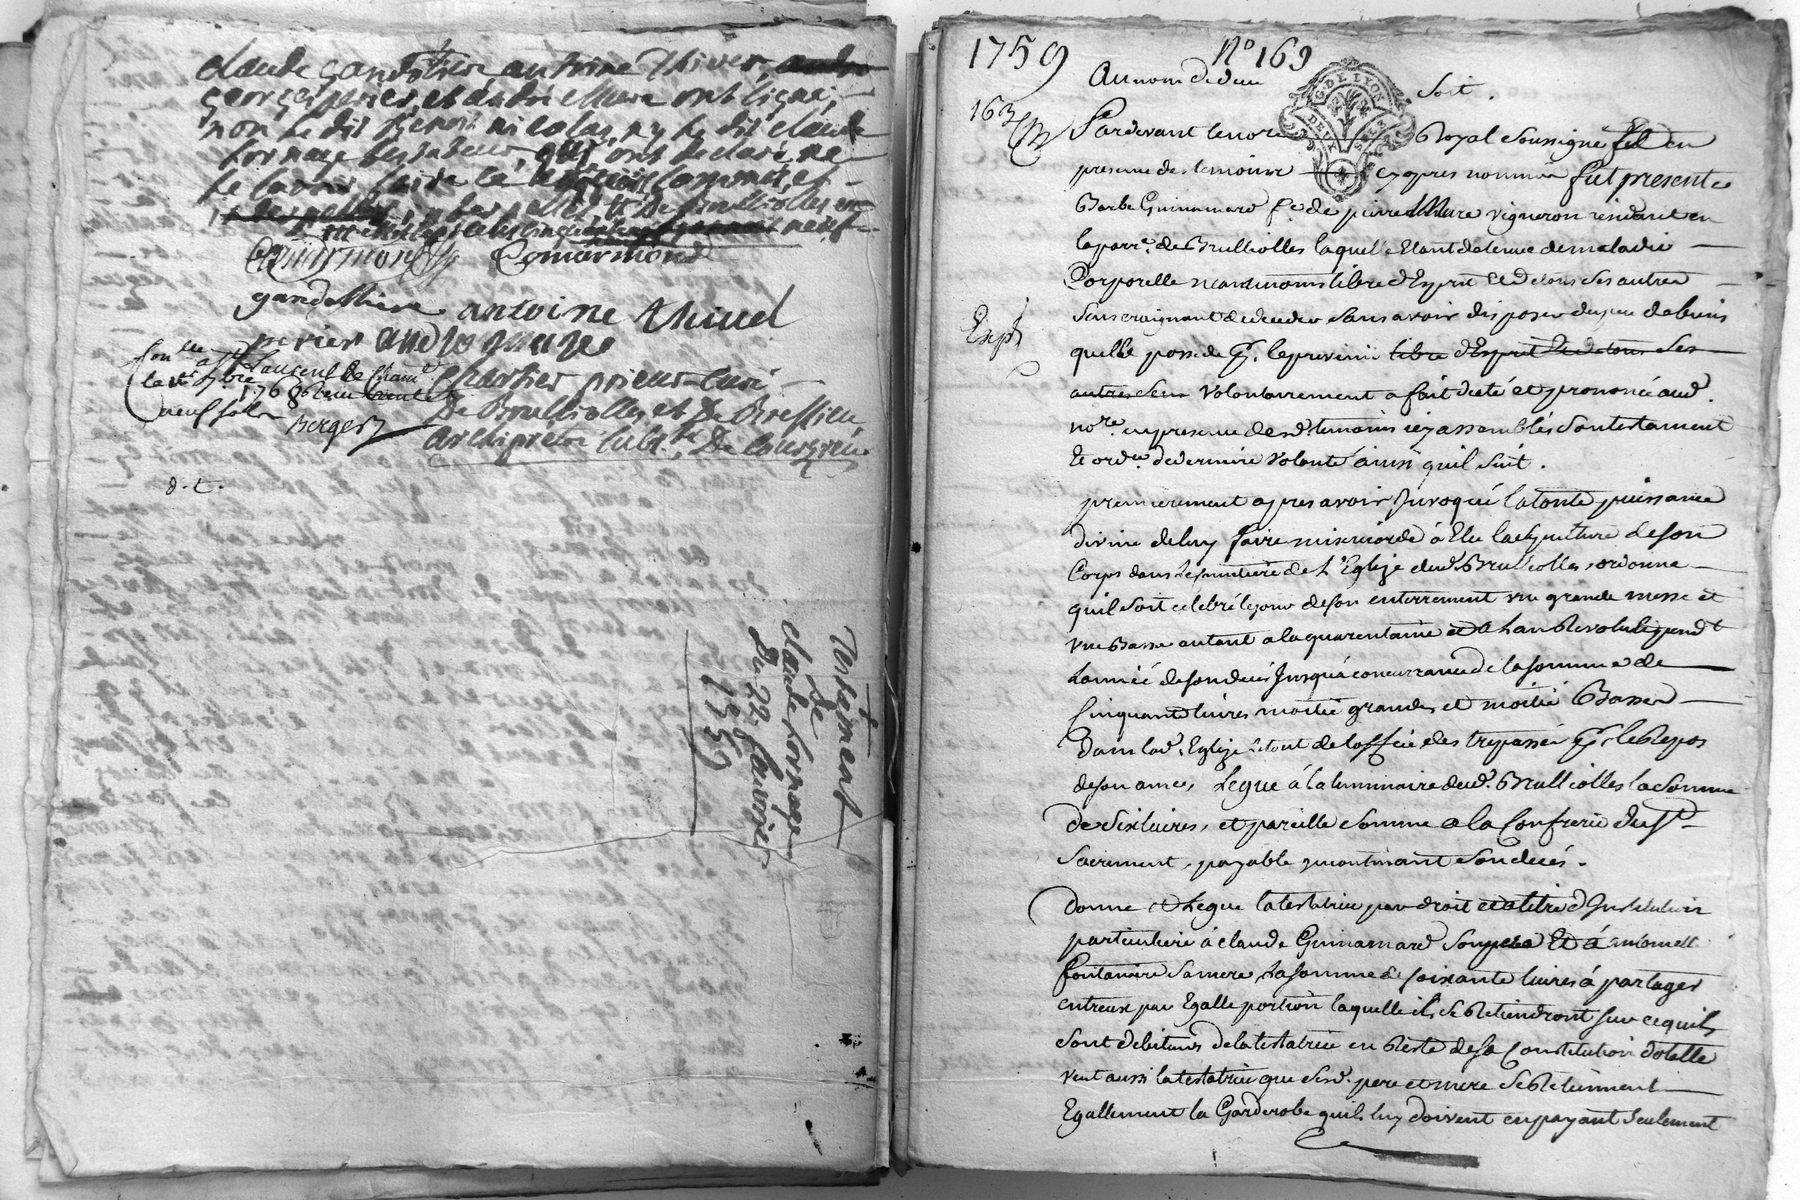 claude gandolliere antoine thivel,
george perier, et andré Mure ont signé,
non le dit Benoit nicolas, ny le dit claude
fornage testateur, qui ont declaré ne
le savoir faire de ce enquis et sommés, et
neuf
gandolliere antoine thivel
perier andre mure
chartier prieur curé
de Brulliolles et de Bressieu
archipretre de Courzieu
Bergen
d. t.
Testament
de
claude fornage
du 22e Janvier
1759
1759 No 169
Au nom de dieu Soit.
163
GDE LYON
DEUX SOLS
Pardevant le no.re Royal Soussigné fut en
presence des temoins cy apres nommés fut presente
Barbe Guinamard f.e de pierre Mure vigneron residant en
la parr.e de Brulliolles laquelle etant detenue de maladie
Corporelle neantmoins libre d'Esprit et de tous ses autres
Sens craignant de deceder sans avoir disposer du peu de biens
Exp.é
quelle possede p.r le prevenir libre d'Esprit et de tous ses
autres sens volontairement a fait dicté et prononcé aud.
no.re en presence desd. temoins icy assemblés son testament
et ord.ce de derniere volonté ainsi quil suit.
premierement apres avoir Invoqué la toute puissance
divine de luy faire misericorde à Elu la sepulture de son
Corps dans le cimetiere de L'Eglize dud. Brulliolles, ordonne
quil soit celebré le jour de son enterrement une grande messe et
une Basse autant a la quarentaine et a l'an Revolu et pend.t
L'année de son decés Jusqu'a concurrance de la somme de
Cinquante livres moitié grandes et moitié Basses
dans lad. Eglize le tout de l'office des trepassés p.r le Repos
de son ame, Legue à la luminaire dud. Brulliolles la somme
de Six livres, et pareille somme a la Confrerie du St.
Sacrement, payable incontinant son decés.
Donne et Legue la testatrice par droit et a titre d'Institution
particuliere à claude Guinamard Son pere Et à antoinette
fontaniere sa mere, la somme de soixante livres à partager
entreux par Egalle portion laquelle ils se Retiendront sur ce quils
sont debiteurs de la testatrice en Reste de sa Constitution dotalle
veut aussi la testatrice que sesd. pere et mere se Retiennent
Egallement la Garderobe quils luy doivent en payant seulement